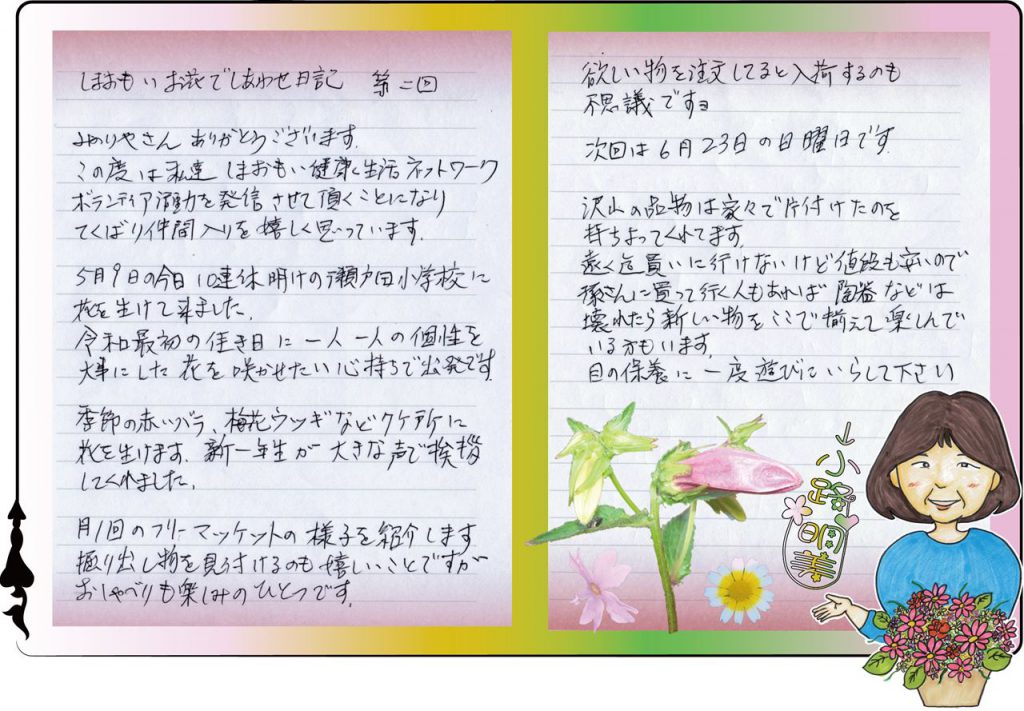 しまおもい お花でしあわせ日記 第二回
みのりやさん ありがとうございます。
この度は私達 しまおもい健康生活ネットワーク
ボランティア活動を発信させて頂くことになり
てくばり仲間入りを嬉しく思っています。
5月9日の今日 10連休明けの瀬戸田小学校に
花を生けて来ました。
令和最初の佳き日に 一人一人の個性を
大事にした 花を咲かせたい心持ちで出発です。
季節の赤いバラ、梅花ウツギなど9ケ所に
花を生けます。新一年生が 大きな声で挨拶
してくれました。
月1回のフリーマッケットの様子を紹介します
掘り出し物を見つけるのも嬉しいことですが
おしゃべりも楽しみのひとつです。
欲しい物を注文してると入荷するのも
不思議ですョ
次回は6月23日の日曜日です。
沢山の品物は家々で片付けたのを
持ちよってくれてます。
遠く迄買いに行けないけど値段も安いので
孫さんに買って行く人もあれば 陶器などは
壊れたら新しい物をここで揃えて楽しんで
いる方もいます。
目の保養に一度遊びにいらして下さい
小路明美